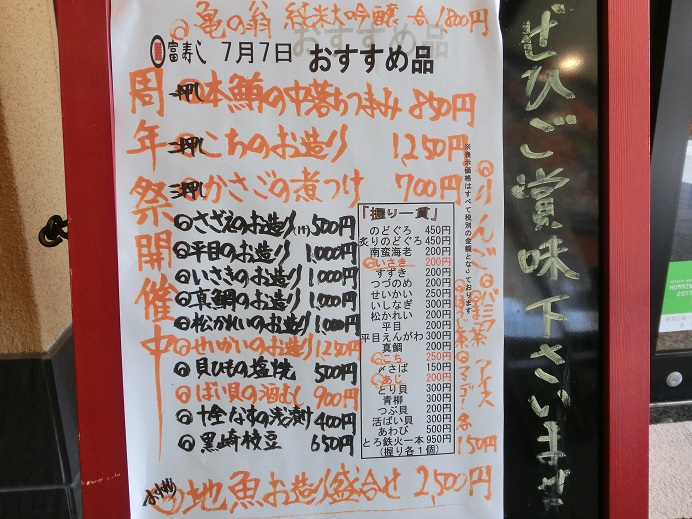 亀の翁 純米大吟醸 一合 1,800円
富寿し 7月7日 おすすめ品
周年祭開催中
一押し 本鮪の中落ちつまみ 850円
二押し こちのお造り 1,250円
三押し かさごの煮つけ 700円
さざえのお造り(1ヶ) 500円
平目のお造り 1,000円
いさきのお造り 1,000円
真鯛のお造り 1,000円
松かれいのお造り 1,000円
せいかいのお造り 1,250円
貝ひもの塩焼 500円
ばい貝の酒むし 900円
十全なすの浅漬け 400円
黒崎枝豆 650円
「握り一貫」
のどぐろ 450円
炙りのどぐろ 450円
南蛮海老 200円
いさき 200円
すずき 200円
つづのめ 200円
せいかい 250円
いしなぎ 300円
松かれい 200円
平目 200円
平目えんがわ 300円
真鯛 200円
こち 250円
〆さば 150円
あじ 200円
とり貝 300円
青柳 300円
つぶ貝 200円
活ばい貝 300円
あわび 500円
とろ鉄火一本 950円
(握り各1個)
※表示価格はすべて税別の金額となっております
りんご バニラ アイス
ほうじ茶 各150円
おすすめ 地魚お造り盛合せ 2,500円
ぜひご賞味下さいませ